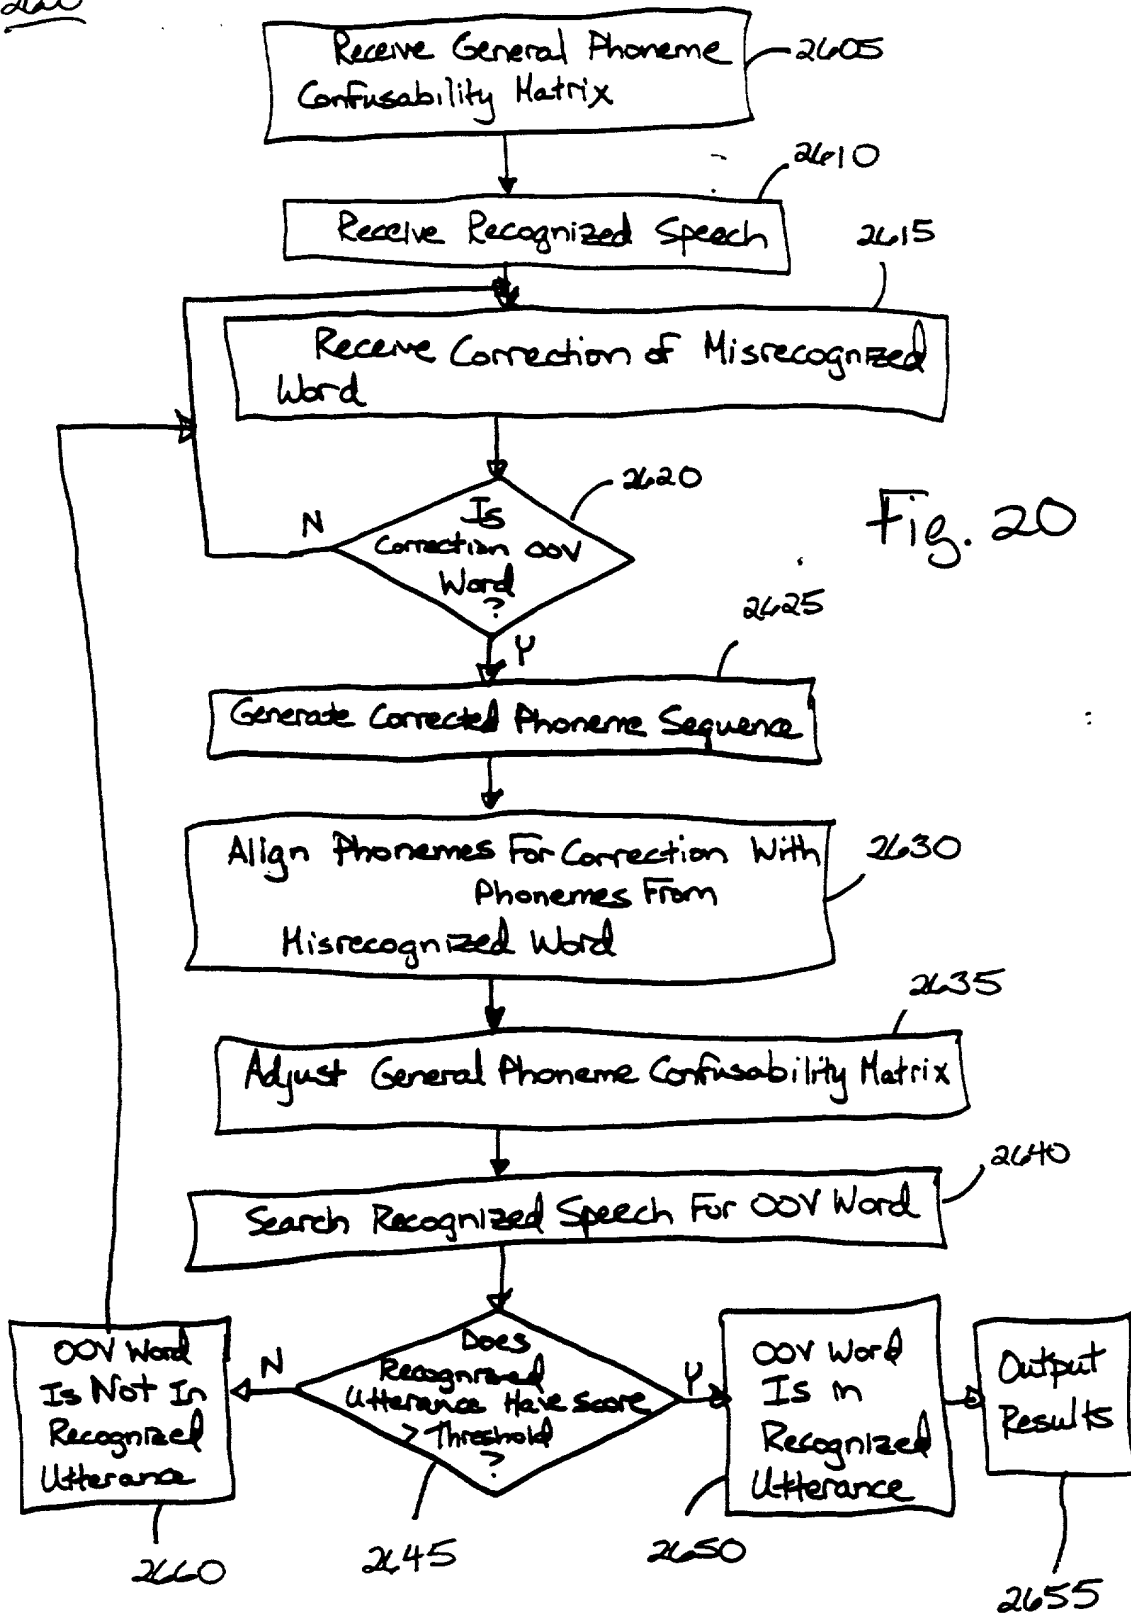 Receive General Phoneme
Confusability Matrix
2605
2610
Receive Recognized Speech
2615
Receive Correction of Misrecognized
Word
2620
N
Is
Correction OOV
Word
?
Fig. 20
Y
2625
Generate Corrected Phoneme Sequence
Align Phonemes For Correction With
Phonemes From
Misrecognized Word
2630
2635
Adjust General Phoneme Confusability Matrix
2640
Search Recognized Speech For OOV Word
OOV Word
Is Not In
Recognized
Utterance
N
Does
Recognized
Utterance Have Score
> Threshold
?
Y
OOV Word
Is in
Recognized
Utterance
Output
Results
2660
2645
2650
2655